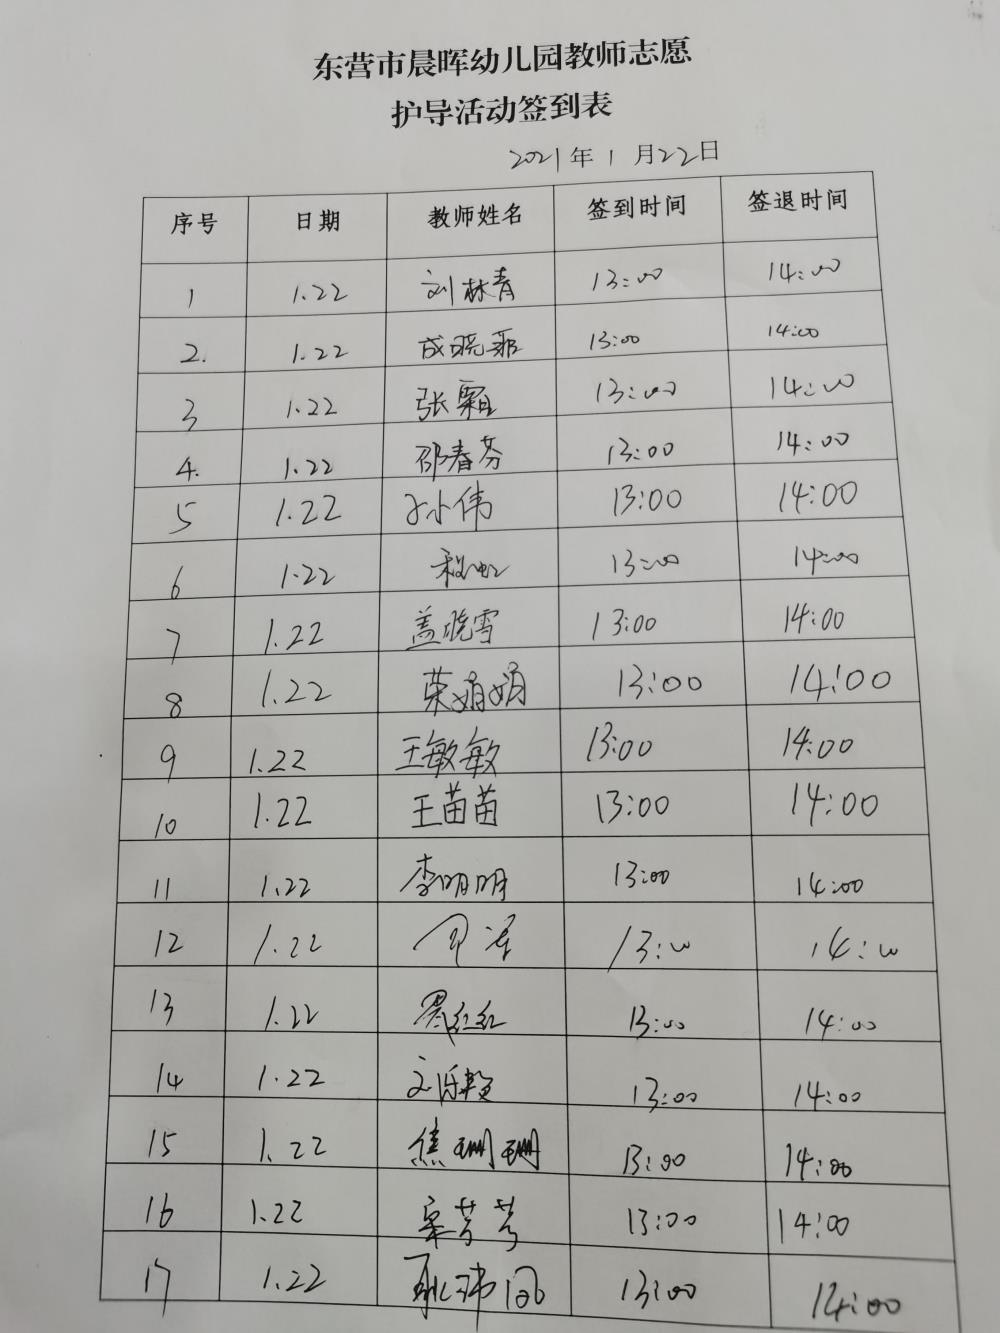 东营市晨晖幼儿园教师志愿
护导活动签到表
2021年1月22日
序号 日期 教师姓名 签到时间 签退时间
1 1.22 刘林青 13:00 14:00
2. 1.22 成晓菲 13:00 14:00
3 1.22 张霜 13:00 14:00
4. 1.22 邵春芬 13:00 14:00
5 1.22 孙小伟 13:00 14:00
6 1.22 13:00 14:00
7 1.22 盖晓雪 13:00 14:00
8 1.22 荣娟娟 13:00 14:00
9 1.22 王敏敏 13:00 14:00
10 1.22 王苗苗 13:00 14:00
11 1.22 李明明 13:00 14:00
12 1.22 13:00 14:00
13 1.22 红红 13:00 14:00
14 1.22 13:00 14:00
15 1.22 焦珊珊 13:00 14:00
16 1.22 芳芳 13:00 14:00
17 1.22 13:00 14:00